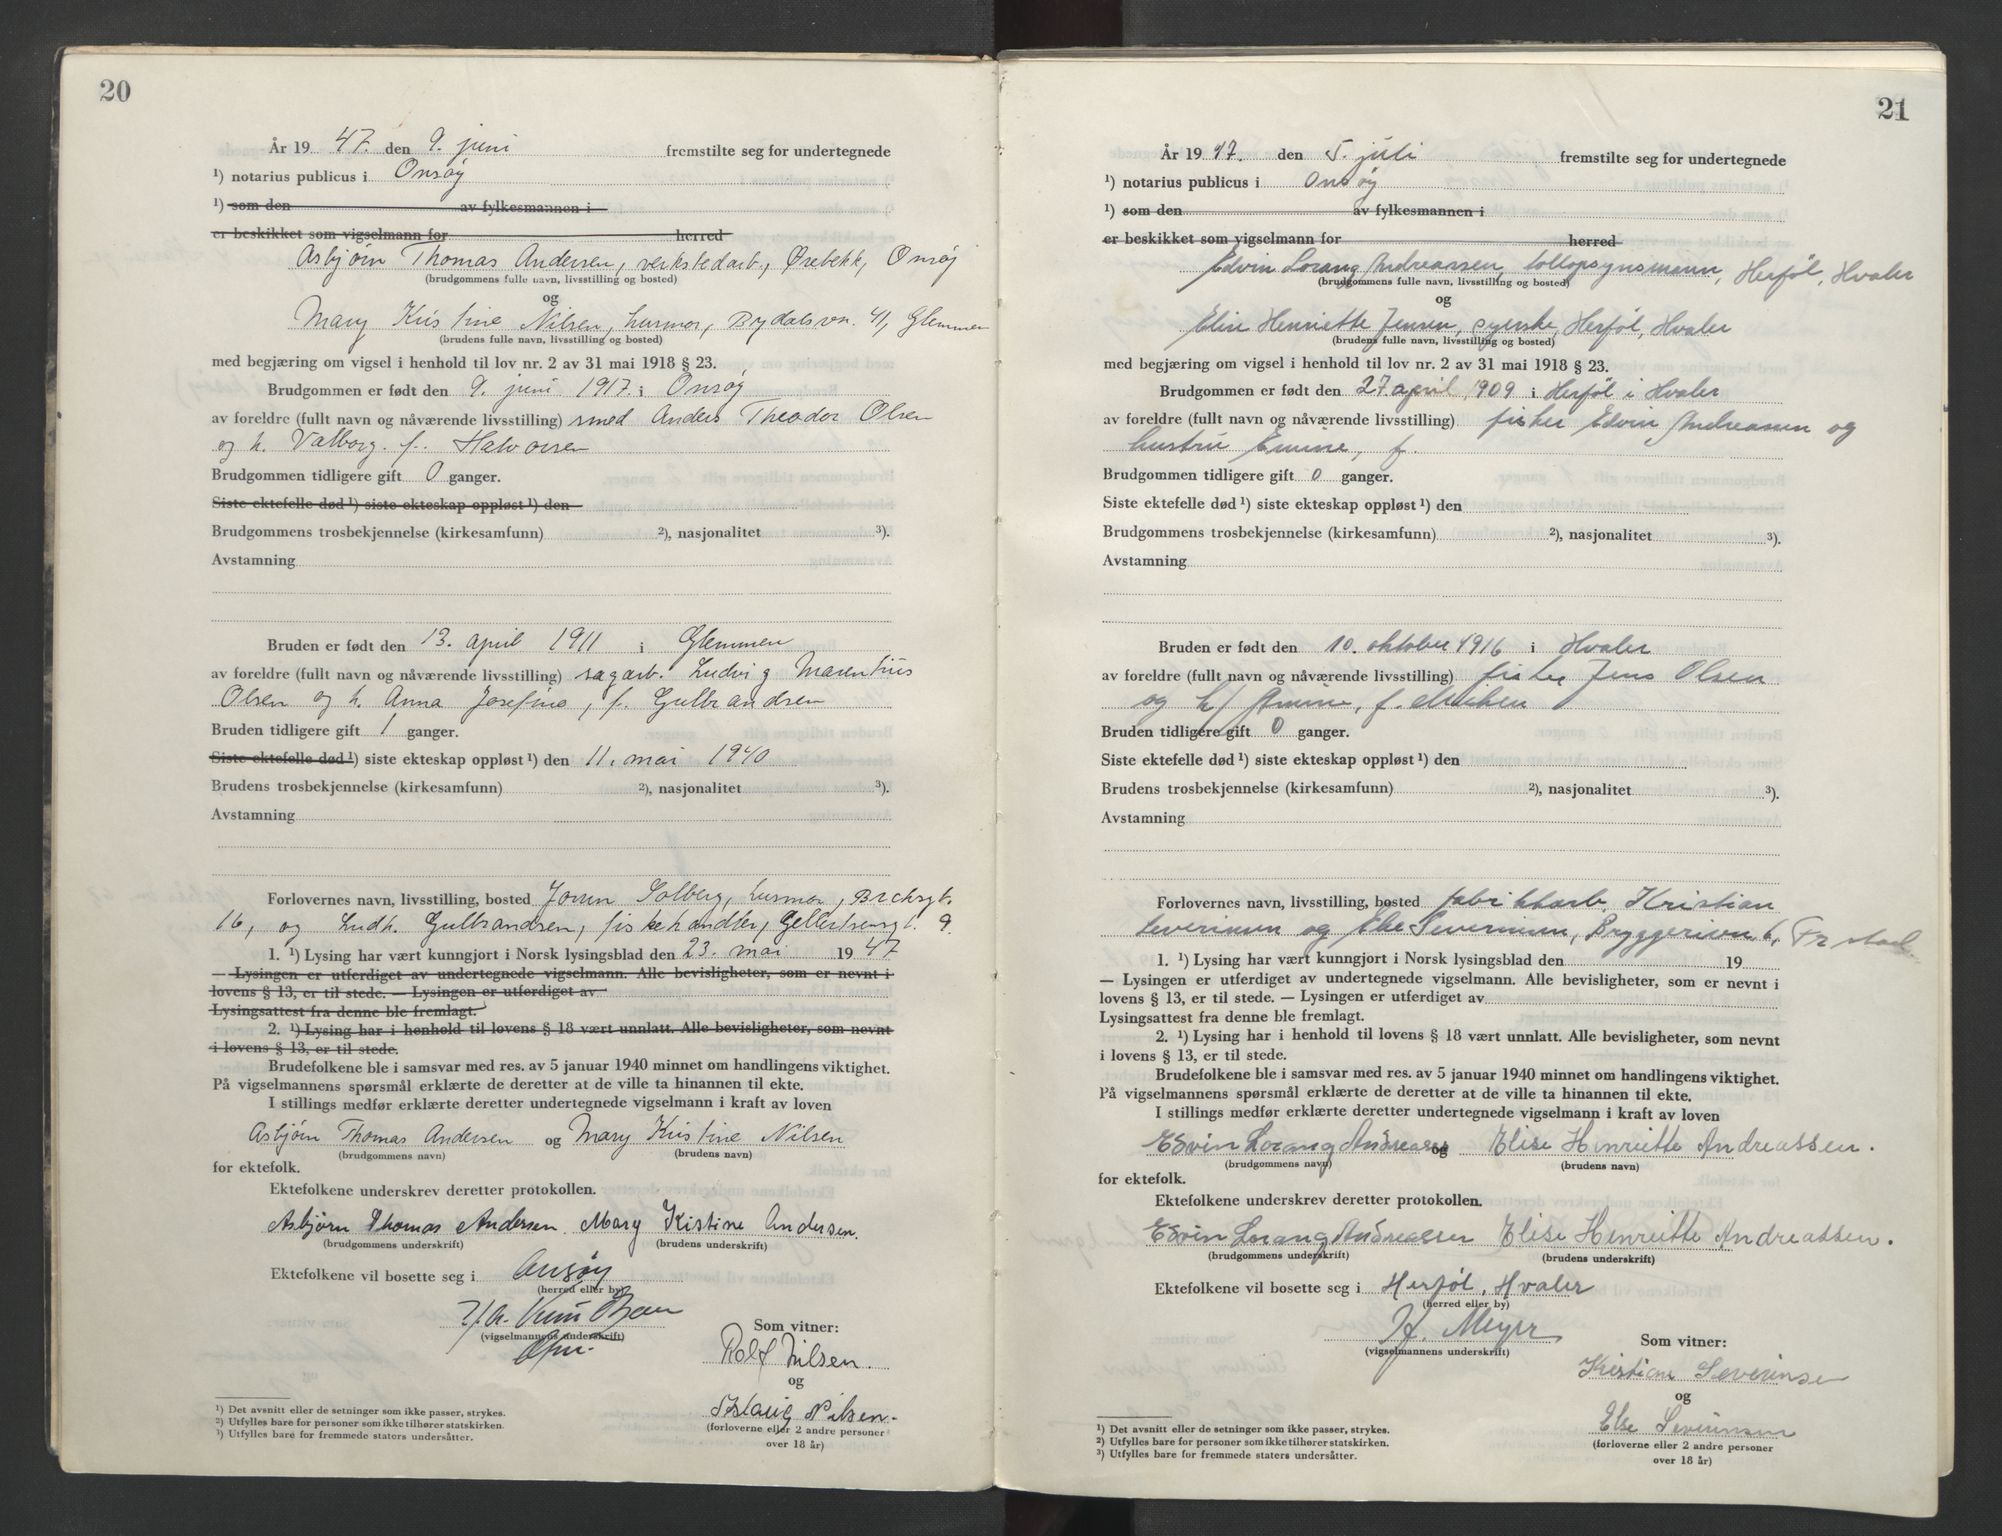 20
År 19 47. den 9. juni fremstilte seg for undertegnede
¹) notarius publicus i Onsøy
¹) som den av fylkesmannen i
er beskikket som vigselmann for herred
Asbjörn Thomas Andersen, verkstedarb., Ørebekk, Onsøy
(brudgommens fulle navn, livsstilling og bosted)
og
Mary Kristine Nilsen, husmor, Bydalsvn. 41, Glemmen
(brudens fulle navn, livsstilling og bosted)
med begjæring om vigsel i henhold til lov nr. 2 av 31 mai 1918 § 23.
Brudgommen er født den 9. juni 1917. i Onsøy
av foreldre (fullt navn og nåværende livsstilling) smed Anders Theodor Olsen
og h. Valborg. f. Halvorsen
Brudgommen tidligere gift 0 ganger.
Siste ektefelle død ¹) siste ekteskap oppløst ¹) den
Brudgommens trosbekjennelse (kirkesamfunn) ²), nasjonalitet ³).
Avstamning
Bruden er født den 13. april 1911 i Glemmen
av foreldre (fullt navn og nåværende livsstilling) sagarb. Ludvig Marentius
Olsen og h. Anna Josefine, f. Gulbrandsen
Bruden tidligere gift 1 ganger.
Siste ektefelle død ¹) siste ekteskap oppløst ¹) den 11. mai 1940
Brudens trosbekjennelse (kirkesamfunn) ²), nasjonalitet ³).
Avstamning
Forlovernes navn, livsstilling, bosted Solberg, husmor,
16, og Ludh. Gulbrandsen, fiskehandler, 9.
1. ¹) Lysing har vært kunngjort i Norsk lysingsblad den 23. mai 19 47
— Lysingen er utferdiget av undertegnede vigselmann. Alle bevisligheter, som er nevnt i
lovens § 13, er til stede. — Lysingen er utferdiget av
Lysingsattest fra denne ble fremlagt.
2. ¹) Lysing har i henhold til lovens § 18 vært unnlatt. Alle bevisligheter, som nevnt
i lovens § 13, er til stede.
Brudefolkene ble i samsvar med res. av 5 januar 1940 minnet om handlingens viktighet.
På vigselmannens spørsmål erklærte de deretter at de ville ta hinannen til ekte.
I stillings medfør erklærte deretter undertegnede vigselmann i kraft av loven
Asbjörn Thomas Andersen og Mary Kristine Nilsen
(brudgommens navn) (brudens navn)
for ektefolk.
Ektefolkene underskrev deretter protokollen.
Asbjørn Thomas Andersen. Mary Kistine Andersen.
(brudgommens underskrift) (brudens underskrift)
Ektefolkene vil bosette seg i Onsøy
(herred eller by)
(vigselmannens underskrift)
Som vitner:
Rolf Nilsen.
og
Nilsen.
(forloverne eller 2 andre personer
over 18 år)
¹) Det avsnitt eller de setninger som ikke passer, strykes.
²) Utfylles bare for personer som ikke tilhører statskirken.
³) Utfylles bare for fremmede staters undersåtter.
21
År 19 47. den 5. juli fremstilte seg for undertegnede
¹) notarius publicus i Onsøy
¹) som den av fylkesmannen i
er beskikket som vigselmann for herred
Edvin Lorang Andreassen, tollopsynsmann, Herföl, Hvaler
(brudgommens fulle navn, livsstilling og bosted)
og
Elise Henriette Jensen, syerske, Herföl, Hvaler
(brudens fulle navn, livsstilling og bosted)
med begjæring om vigsel i henhold til lov nr. 2 av 31 mai 1918 § 23.
Brudgommen er født den 27. april 1909 i Herföl i Hvaler
av foreldre (fullt navn og nåværende livsstilling) fisker Edvin Andreassen og
hustru Emine, f.
Brudgommen tidligere gift 0 ganger.
Siste ektefelle død ¹) siste ekteskap oppløst ¹) den
Brudgommens trosbekjennelse (kirkesamfunn) ²), nasjonalitet ³).
Avstamning
Bruden er født den 10. oktober 1916 i Hvaler
av foreldre (fullt navn og nåværende livsstilling) fisker Jens Olsen
og h/ f.
Bruden tidligere gift 0 ganger.
Siste ektefelle død ¹) siste ekteskap oppløst ¹) den
Brudens trosbekjennelse (kirkesamfunn) ²), nasjonalitet ³).
Avstamning
Forlovernes navn, livsstilling, bosted fabrikkarb. Kristian
Severinsen og Else Severinsen, Bryggeriveien 6, Fr.stad.
1. ¹) Lysing har vært kunngjort i Norsk lysingsblad den 19
— Lysingen er utferdiget av undertegnede vigselmann. Alle bevisligheter, som er nevnt i
lovens § 13, er til stede. — Lysingen er utferdiget av
Lysingsattest fra denne ble fremlagt.
2. ¹) Lysing har i henhold til lovens § 18 vært unnlatt. Alle bevisligheter, som nevnt
i lovens § 13, er til stede.
Brudefolkene ble i samsvar med res. av 5 januar 1940 minnet om handlingens viktighet.
På vigselmannens spørsmål erklærte de deretter at de ville ta hinannen til ekte.
I stillings medfør erklærte deretter undertegnede vigselmann i kraft av loven
Edvin Lorang Andreassen og Elise Henriette Andreassen.
(brudgommens navn) (brudens navn)
for ektefolk.
Ektefolkene underskrev deretter protokollen.
Edvin Lorang Andreassen Elise Henriette Andreassen.
(brudgommens underskrift) (brudens underskrift)
Ektefolkene vil bosette seg i Herføl, Hvaler
(herred eller by)
H. Meyer
(vigselmannens underskrift)
Som vitner:
Kristian Severinsen
og
Else Severinsen
(forloverne eller 2 andre personer
over 18 år)
¹) Det avsnitt eller de setninger som ikke passer, strykes.
²) Utfylles bare for personer som ikke tilhører statskirken.
³) Utfylles bare for fremmede staters undersåtter.